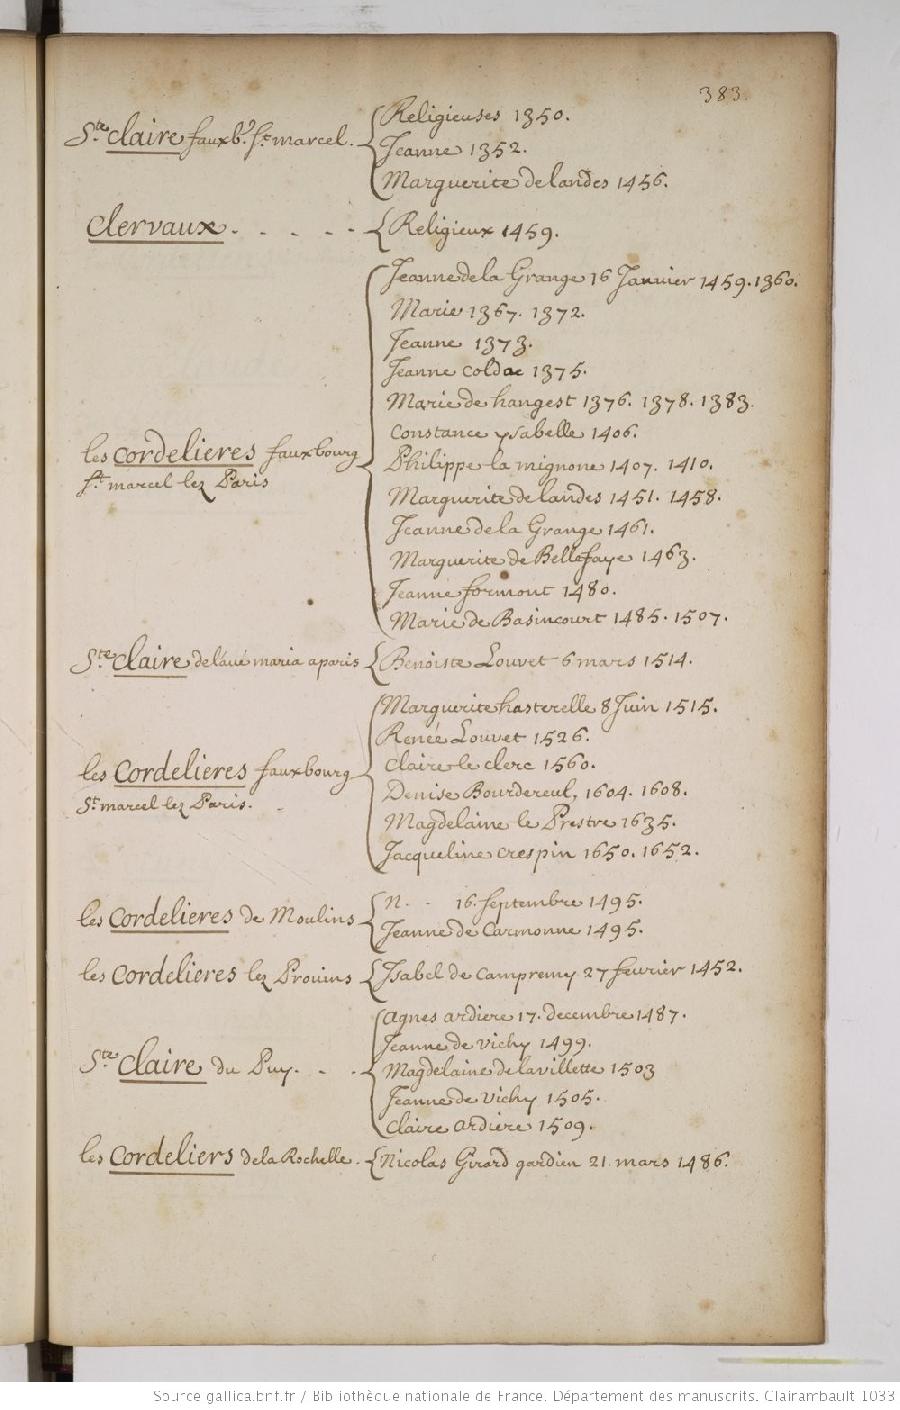 383.
Ste. Claire fauxb.g St. marcel.
Religieuses 1350.
Jeanne 1352.
Marguerite de landes 1456.
Clervaux . . . . .
Religieux 1459.
les Cordelieres fauxbourg
St. marcel lez Paris
Jeanne de la Grange 16 Janvier 1459. 1360.
Marie 1367. 1372.
Jeanne 1373.
Jeanne coldoe 1375.
Marie de hangest 1376. 1378. 1383.
Constance ysabelle 1406.
Philippe la mignone 1407. 1410.
Marguerite de landes 1451. 1458.
Jeanne de la Grange 1461.
Marguerite de Bellefaye 1463.
Jeanne formont 1480.
Marie de Basincourt 1485. 1507.
Ste. Claire de l'avé maria a paris
Benoiste Louvet 6 mars 1514.
les Cordelieres fauxbourg
St. marcel lez Paris.
Marguerite hasterelle 8 Juin 1515.
Renée Louvet 1526.
Claire le clerc 1560.
Denise Bourdereul, 1604. 1608.
Magdelaine le Prestre 1635.
Jacqueline crespin 1650. 1652.
les Cordelieres de Moulins
N. . . 16. septembre 1495.
Jeanne de Carmonne 1495.
les Cordelieres lez Provins
Isabel de Campremy 27 fevrier 1452.
Ste. Claire du Puy. . .
agnes ardiere 17. decembre 1487.
Jeanne de vichy 1499.
Magdelaine de la villette 1503
Jeanne de vichy 1505.
Claire ardiere 1509.
les Cordeliers de la Rochelle.
Nicolas Girard gardien 21 mars 1486.
Source gallica.bnf.fr / Bibliothèque nationale de France. Département des manuscrits. Clairambault 1033